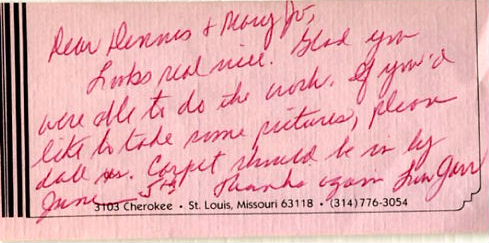 Dear Dennis & Mary Jo,
Looks real nice. Glad you
were able to do the work. If you'd
like to take some pictures, please
call us. Carpet should be in by
June 5th Thanks again
3103 Cherokee • St. Louis, Missouri 63118 • (314) 776-3054